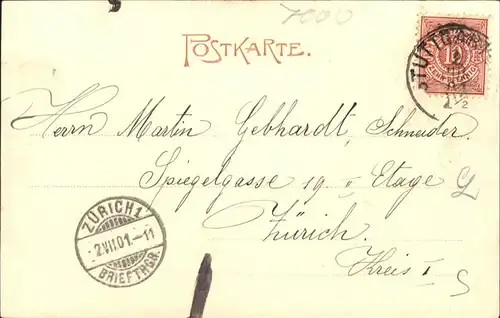 7000
POSTKARTE.
STUTTGART
10
Herrn Martin Gebhardt, Schneider.
Spiegelgasse 19. II Etage
Zürich.
Kreis I
ZÜRICH 1
2.VII.01.-11
BRIEFTRGR.